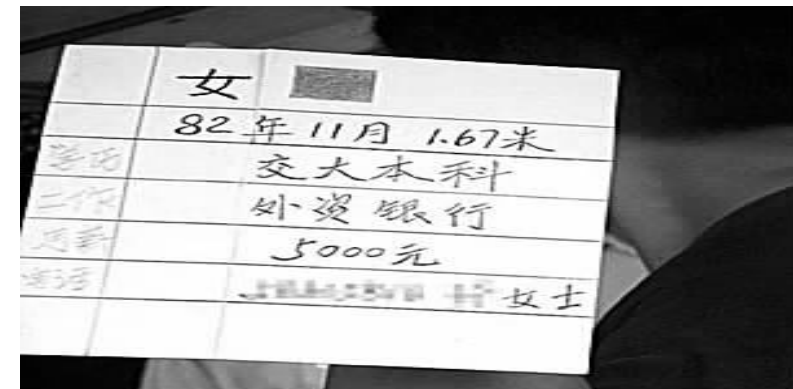 女
82年11月 1.67米
学历 交大本科
工作 外资银行
月薪 5000元
电话 女士